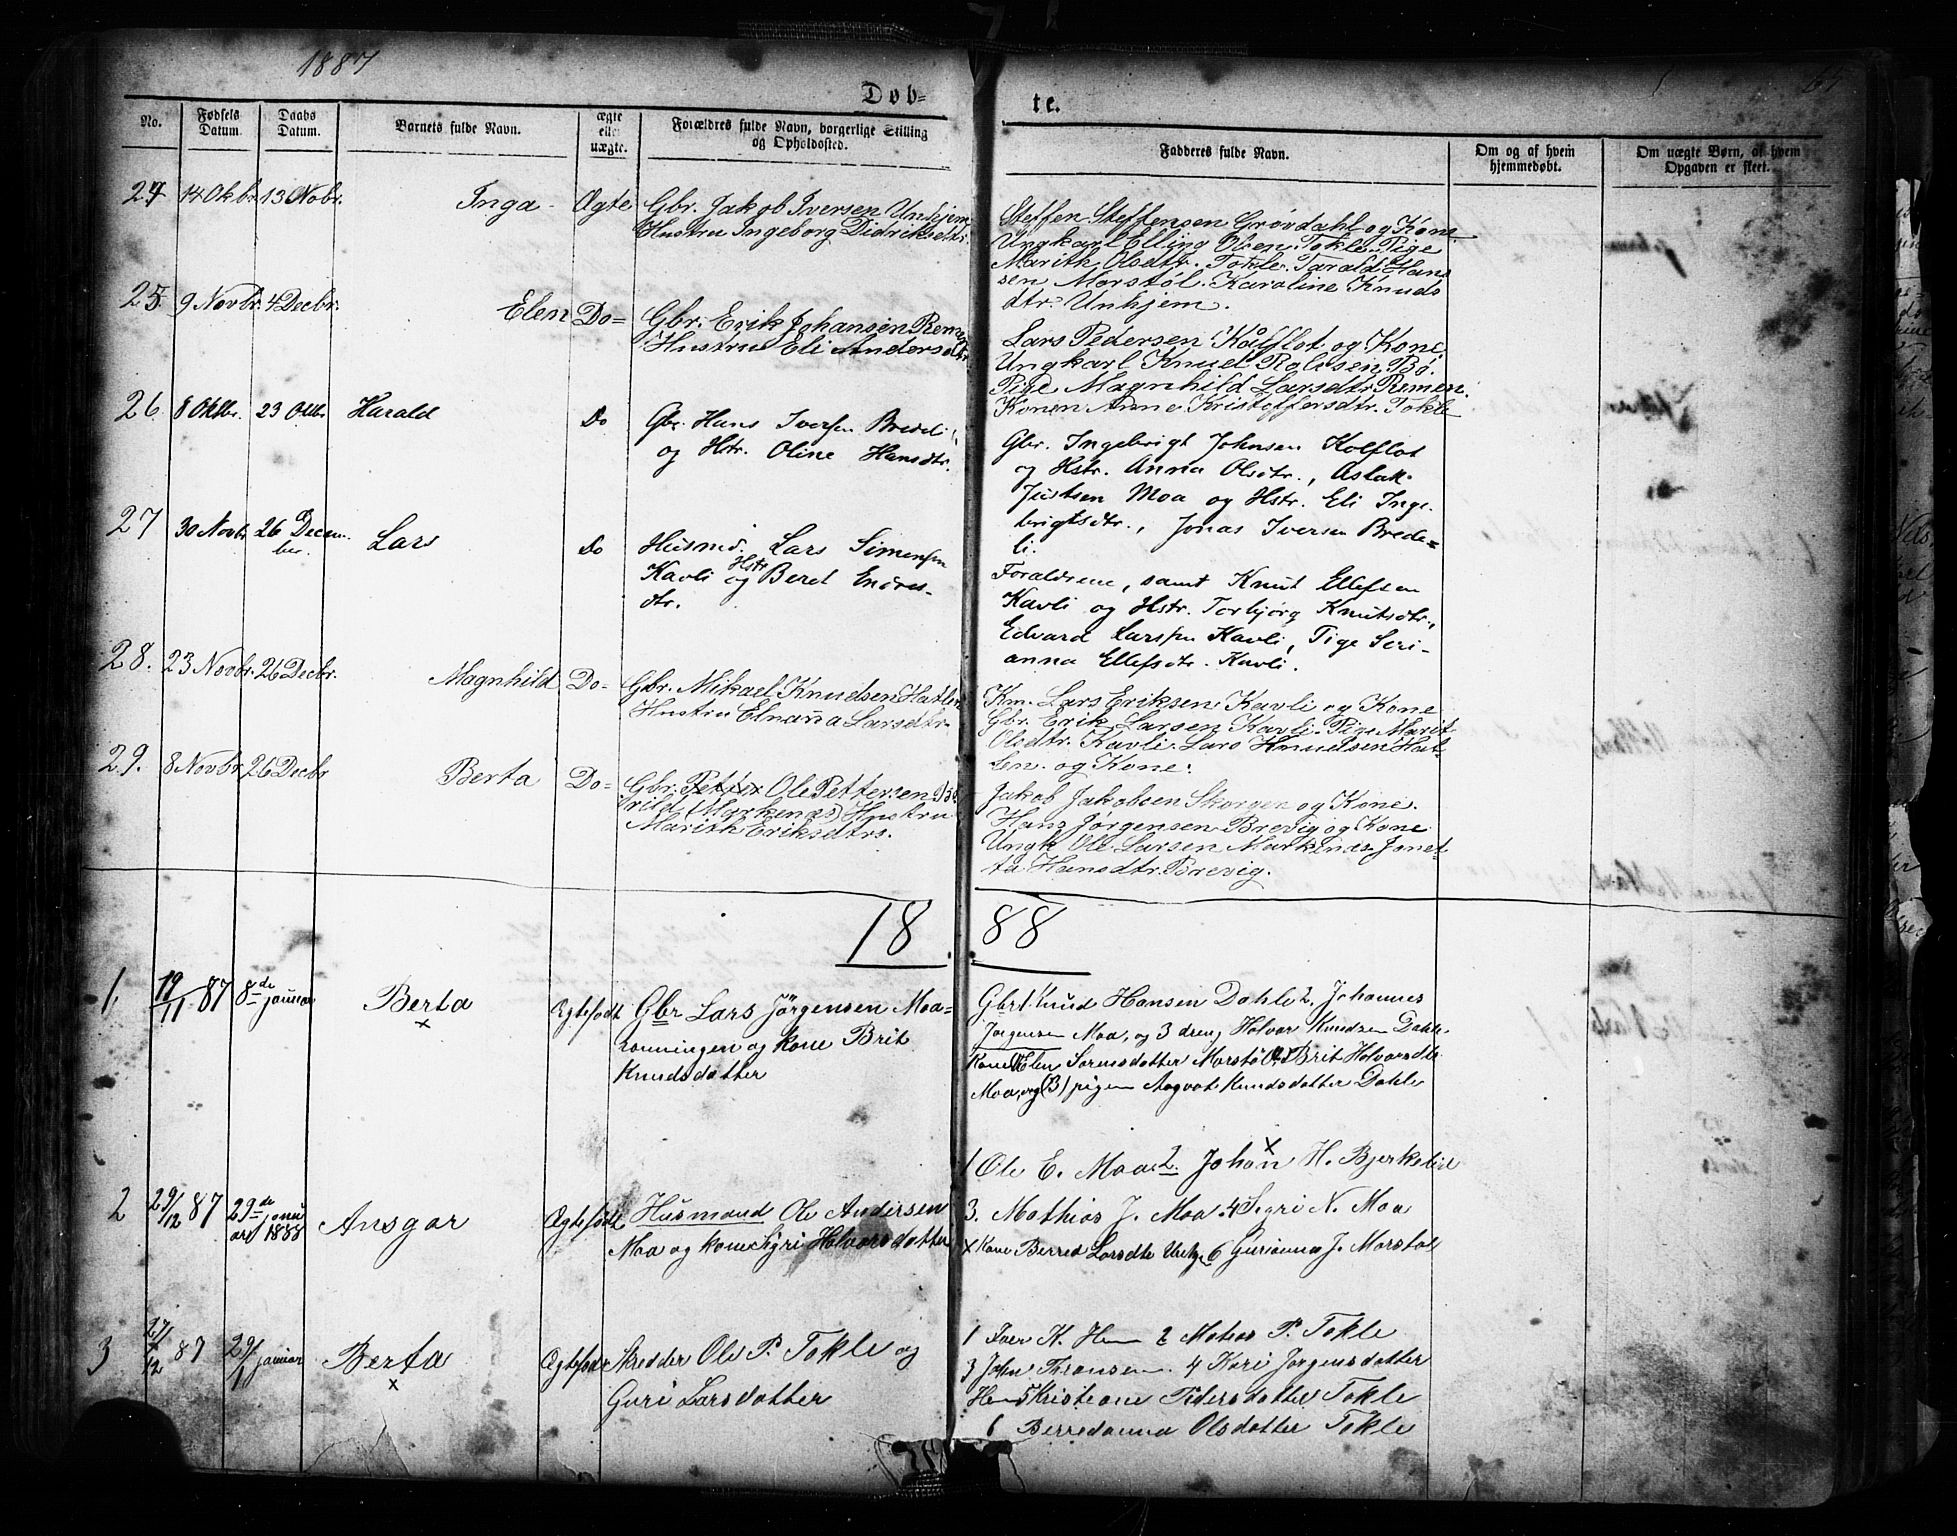 1887
Døb=
te.
No.
Fødsels Datum.
Daabs Datum.
Barnets fulde Navn.
ægte eller uægte.
Forældres fulde Navn, borgerlige Stilling og Opholdssted.
Faddernes fulde Navn.
Om og af hvem hjemmedøbt.
Om uægte Børn, af hvem Opgaven er skeet.
24 14 Okbr. 13 Nobr. Inga - Ægte Gbr. Jakob Iversen Unhjem
Hustru Ingeborg Didriksdtr.
Steffen Steffensen Grøvdahl og Kone
Ungkarl Elling Olsen Tokle. Pige
Marith Olsdtr. Tokle. Tarald Han-
sen Morstøl. Karoline Knuds
dtr. Unhjem.
25 9 Novbr. 4 Decbr. Elen Do= Gbr. Erik Johansen Remen
Hustru Eli Andersdtr.
Lars Pedersen Kålflot og Kone.
Ungkarl Knud Rolvsen Bø.
Pige Magnhild Larsdtr. Remen.
Konen Anne Kristoffersdtr. Tokle
26 8 Oktbr. 23 Oktbr. Harald Do Gbr. Hans Iversen Bredeli
og Hstr. Oline Hansdtr.
Gbr. Ingebrigt Johnsen Kolflot
og Hstr. Anna Olsdtr., Aslak
Justsen Moa og Hstr. Eli Inge-
brigtsdtr., Jonas Iversen Brede=
li.
27 30 Novbr. 26 Decem-
ber. Lars Do Husmd. Lars Simensen
Kavli og Hstr Beret Endres-
dtr.
Foraldrene, samt Knut Ellefsen
Kavli og Hstr. Torbjørg Knutsdtr.,
Edvard Larssen Kavli, Pige Seri-
anna Ellefsdtr. Kavli.
28. 23 Novbr. 26 Decbr. Magnhild Do- Gbr. Mikael Knudsen Hatlen
Hustru Elnanna Larsdtr.
Km. Lars Eriksen Kavli og Kone
Gbr. Erik Larsen Kavli. Pige Marit
Olsdtr. Kavli. Lars Knudsen Hat-
len. og Kone.
29. 8 Novbr 26 Decbr Berta Do= Gbr. Petter Ole Pettersen
(Merkenes) Hustru
Marith Eriksdtr.
Jakob Jakobsen Skorgen og Kone.
Hans Jørgensen Brevig og Kone
Ungk Ole Larsen Markenes. Jonet-
ta Hansdtr. Brevig.
18 88
1, 19/11 87 8de januar Berta x Ægtefødt Gbr Lars Jörgensen Moa=
rönningen og kone Brit
Knudsdatter
Gbr 1. Knud Hansen Dahle 2. Johannes
Jorgensen Moa, og 3 dreng Holvar Knudsen Dahle
Kone 1 Elen Sorensdatter Morstøl 2 Brit Holvorsdtr
Moa, og (3) pigen Aagoot Knudsdatter Dahle
2 29/12 87 29de janu
ar 1888 Ansgar Ægtefødt Husmand Ole Andersen
Moa og kone Sigri Holvorsdatter
1 Ole E. Moa 2. Johan x H. Bjerkelid
3. Mathias J. Moa 4 Sigri N. Moa
x Kone Berred Larsdtr 6 Gurianna J. Morstøl
3 27/12 87 29/1 januar Berta x Ægtefødt Skredder Ole P. Tokle og
Guri Larsdatter
1 Iver K. Hem 2 Matias P. Tokle
3 John Thronsen. 4 Kari Jorgensdatter
Hem 5 Kristiane Pedersdatter Tokle
6 Berredanna Olsdatter Tokle